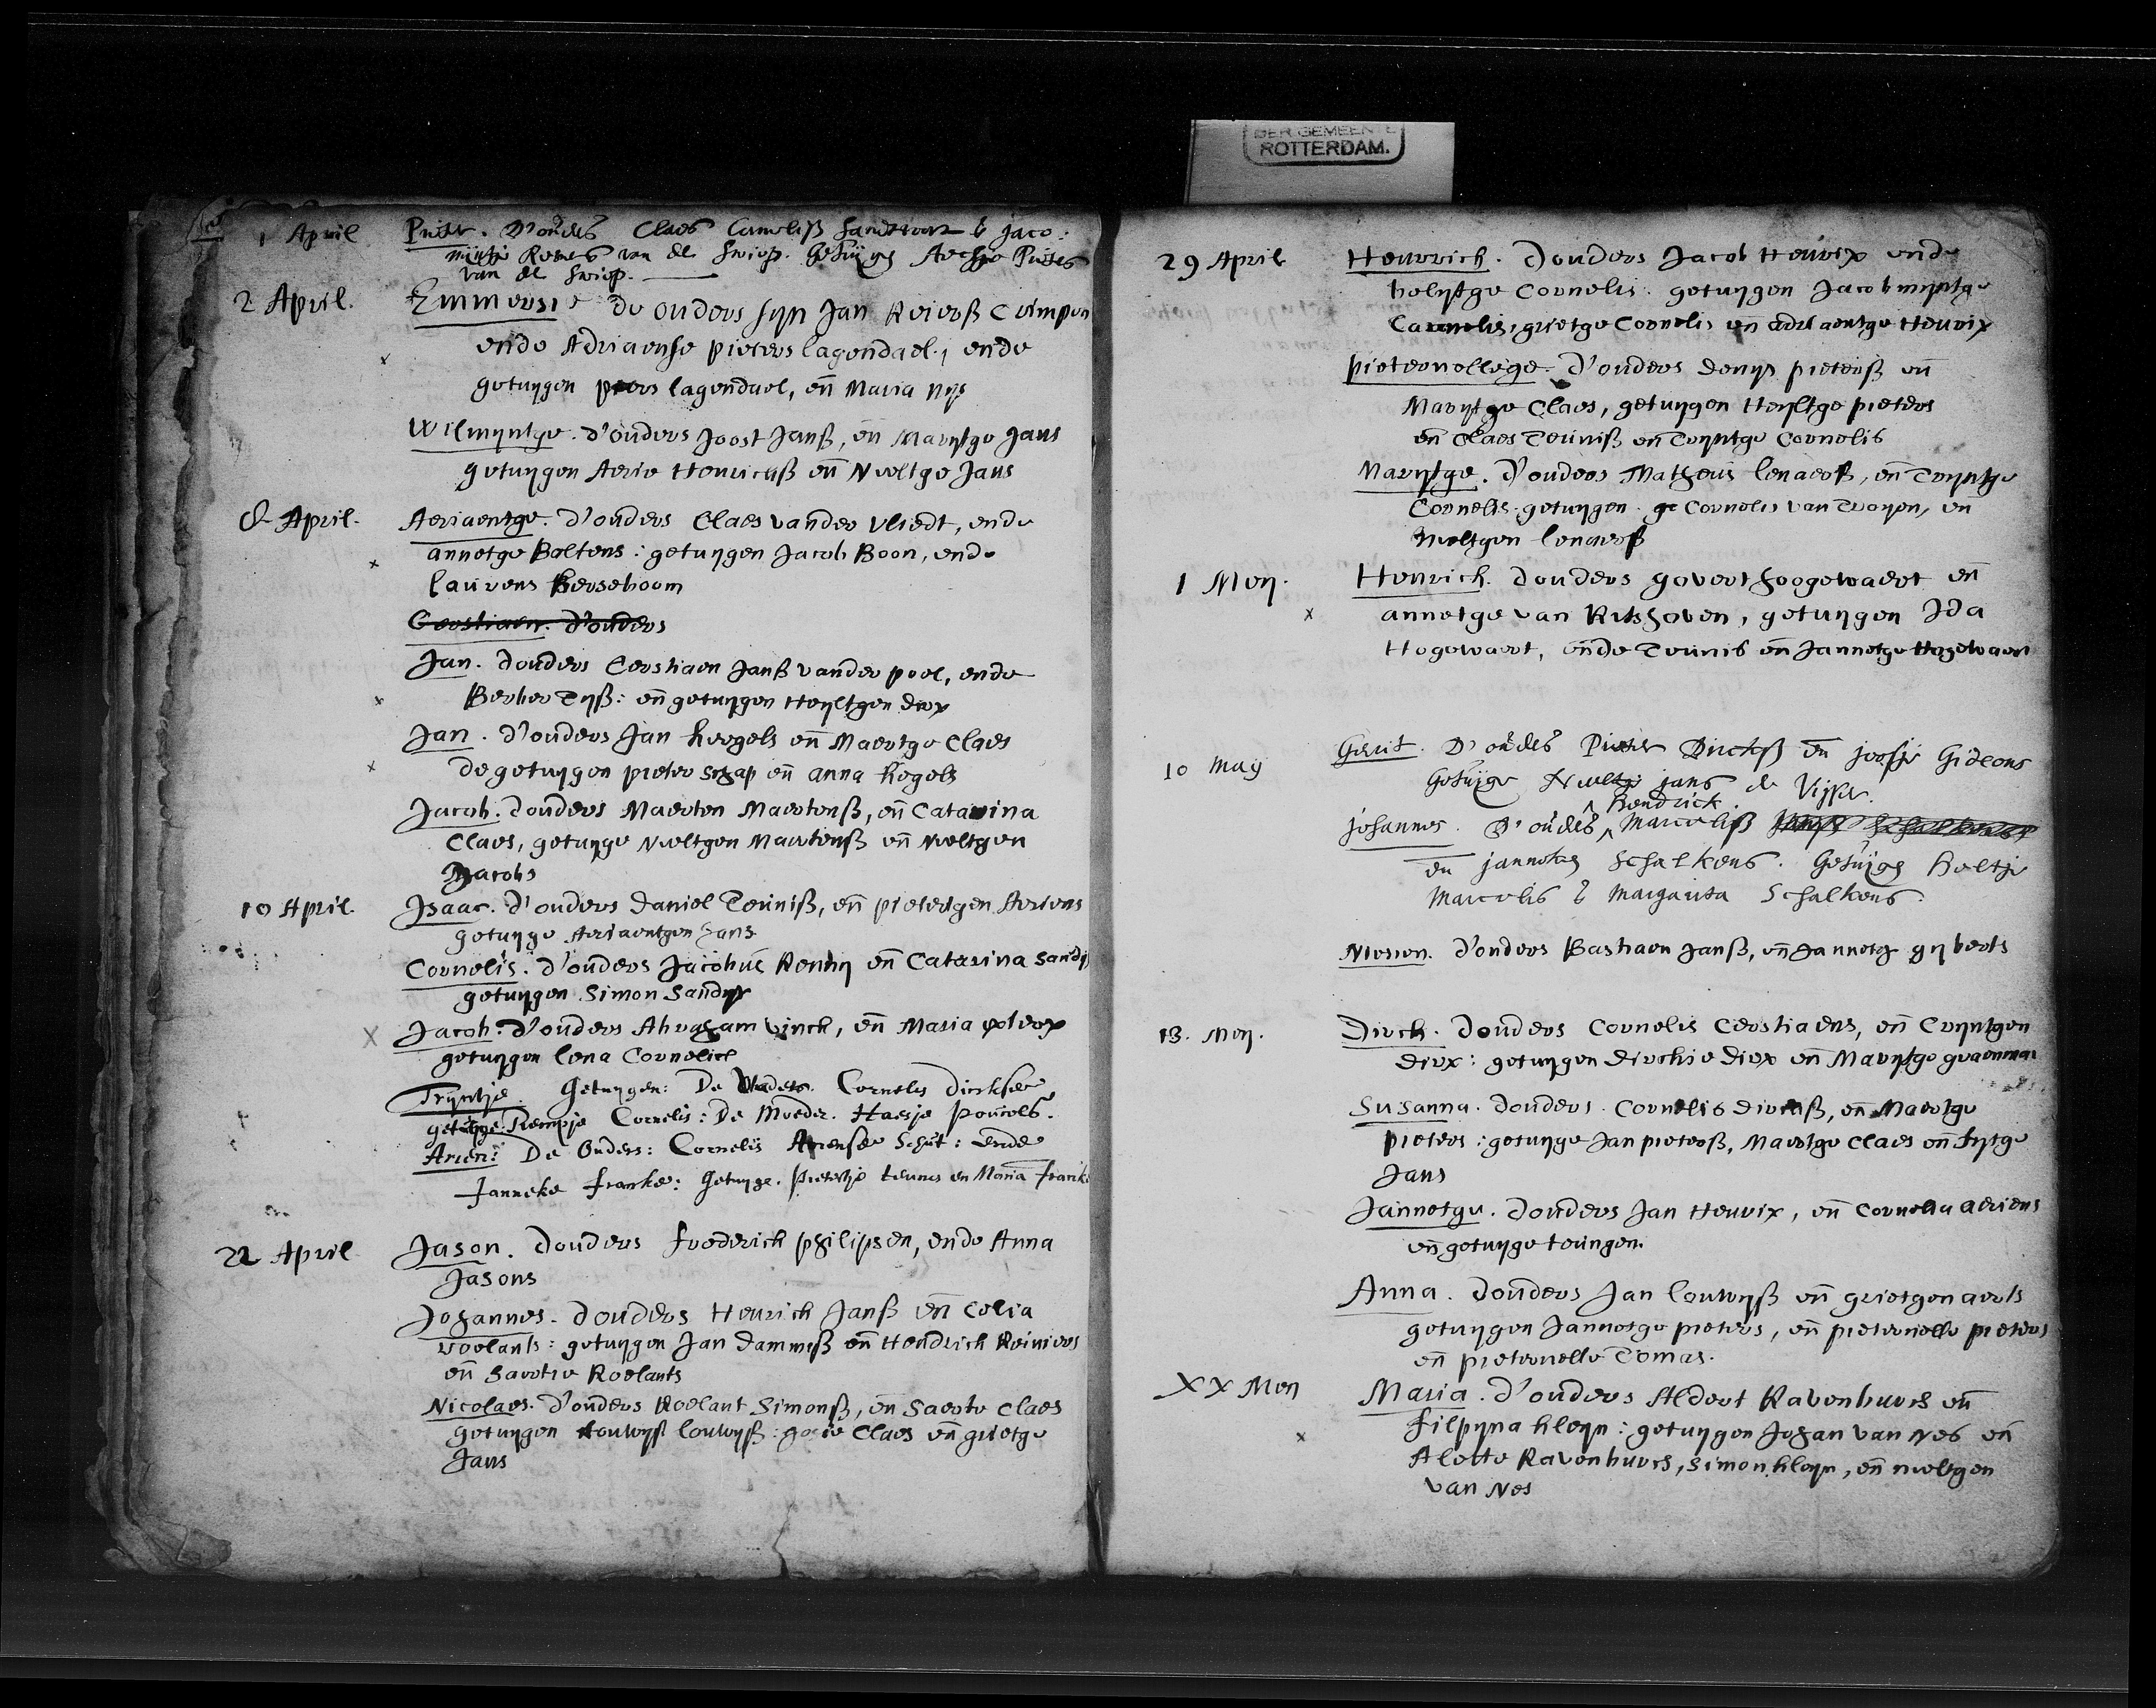 DER GEMEENTE
ROTTERDAM.
1 April Pieter. D'ouders Claes Cornelisß Sandtvoort & Jaco:
mijntje Romes van de Swiep. Getuijge Aechje Pieters
van de Swiep.
2 April. Emmersie de ouders sijn Jan Reiersß Crimpen
ende Adriaense pieters lagendael, ende
getuygen pieters lagendael, eñ Maria nys
Wilmyntge. d'ouders Joost Janß, eñ Marytge Jans
getuygen Aerie Henricksß eñ Neeltge Jans
8 April. Aeriaentge. d'ouders Claes vander vliedt, ende
annetge Baltens: getuygen Jacob Boon, ende
laurens Berseboom
Cerstiaen. d'ouders
Jan. douders Cerstiaen Janß vander pool, ende
Berber Tysß: eñ getuygen Heyltgen dirx
Jan. d'ouders Jan kregels eñ Maertge Claes
de getuygen pieter schap eñ anna kogels
Jacob. douders Maerten Maertensß, eñ Catarina
Claes, getuyge Neeltgen Maertensß eñ Neeltgen
Jacobs
10 April. Isaac. d'ouders daniel Teunisß, eñ pietertgen Aeriens
getuyge Aeriaentgen Jans
Cornelis. d'ouders Jacobus Remy eñ Catarina Sandys
getuygen Simon Sandys
Jacob. d'ouders Abraham vinck, eñ Maria
getuygen lena Cornelis
Tryntje. Getuygen: De Vader. Cornelis dirckse
getuyge Tempje Cornelis: De Moeder. Haesje pouwels.
Arien: De Ouders: Cornelis Ariense Schut: ende
Janneke franke: Getuyge. Pietertje teunes en Maria franke
22 April Jason. douders frederick philipsen, ende Anna
Jasons
Johannes. douders Henrick Janß eñ Celia
roelants: getuygen Jan dammisß eñ Hendrick Reiniers
eñ Saertie Roelants
Nicolaes. d'ouders Roelant Simonsß, eñ Saerte Claes
getuygen louwys louwysß: Claes eñ grietge
Jans
29 April Henrrich. douders Jacob Henrix ende
belytge Cornelis. getuygen Jacobmyntge
Cornelis, grietge Cornelis eñ adriaentge Henrix
pieternellege. d'ouders denys pietersß eñ
Marytge Claes, getuygen Heyltge pieters
eñ Claes Teunisß eñ Tryntge Cornelis
Marytge. d'ouders Matheus lenaersß, eñ Tryntge
Cornelis. getuygen. Cornelis van Troyen, en
Neeltgen lenaersß
1 Mey. Henrich. douders govert hoogewaert eñ
annetge van Ritshoven, getuygen Ida
Hogewaert, ende Teunis eñ Jannetge Hogewaert
10 Maÿ Gerit. D'ouders Pieter Dircksß en Joosje Gideons
Getuijge Neeltje jans de Vijser.
Hendrick
Johannes. D'ouders Marcelisß
en jannetey Schalkens. Getuijge Beeltje
Marcelis & Margarita Schalkens.
d'ouders Bastiaen Janß, eñ Jannetg gyberts
13. Mey. Dirck. douders Cornelis Cerstiaens, eñ Cryntgen
dirx: getuygen dirckie dirx eñ Marytge
Susanna. douders. Cornelis dircksß, eñ Maertge
pieters: getuyge Jan pietersß, Maertge Claes eñ fytge
Jans
Jannetge. douders Jan Henrix, eñ Cornelia adriens
eñ getuyge teungen.
Anna. douders Jan louwysß eñ grietgen aerts
getuygen Jannetge pieters, eñ pieternelle pieters
eñ pieternelle Tomas.
XX Mey Maria. d'ouders Aldert Ravenburch eñ
filpyna kleyn: getuygen Johan van Nes eñ
Alette Ravenburch, Simon kleyn, eñ neeltgen
van Nes